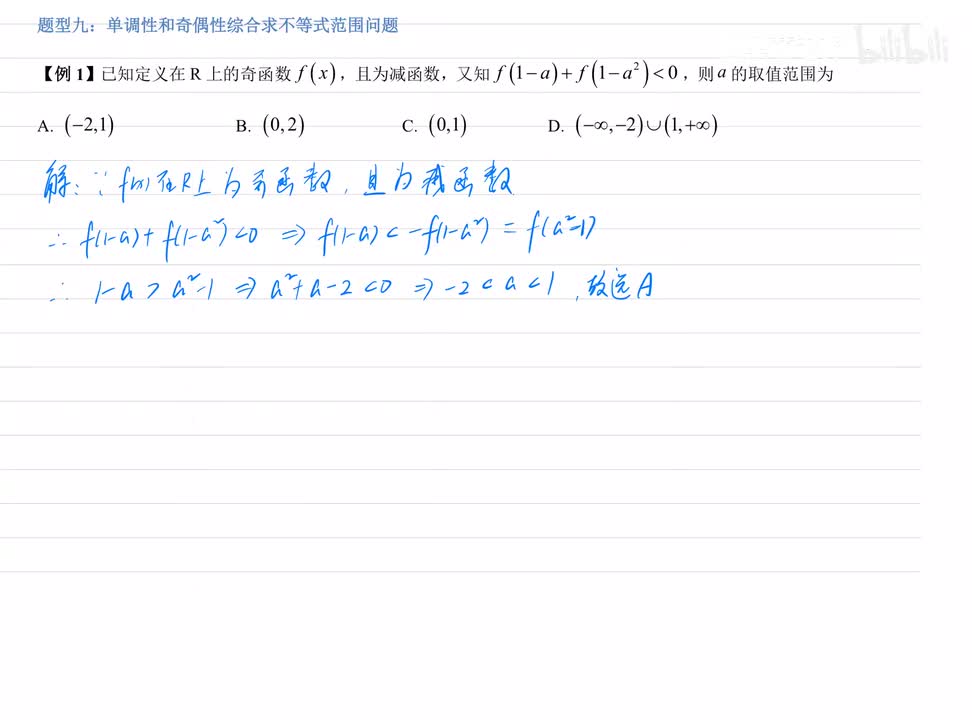 题型九：单调性和奇偶性综合求不等式范围问题
bilibili
【例 1】已知定义在 R 上的奇函数 f(x)，且为减函数，又知 f(1−a)+f(1−a²)<0，则 a 的取值范围为
A. (−2,1) B. (0,2) C. (0,1) D. (−∞,−2)∪(1,+∞)
解：∵ f(x)在R上为奇函数，且为减函数
∴ f(1-a)+f(1-a²)<0 ⇒ f(1-a)<-f(1-a²)=f(a²-1)
∴ 1-a>a²-1 ⇒ a²+a-2<0 ⇒ -2<a<1，故选A